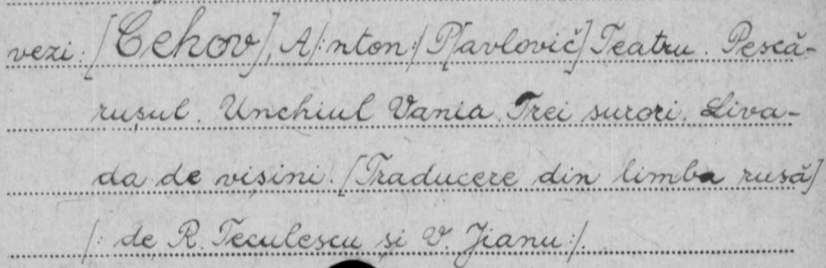 vezi: [Čehov], A/:nton:/ P[avlovič] Teatru. Pescă-
rușul. Unchiul Vania. Trei surori. Liva-
da de vișini. [Traducere din limba rusă]
/: de R. Teculescu și V. Jianu:/.